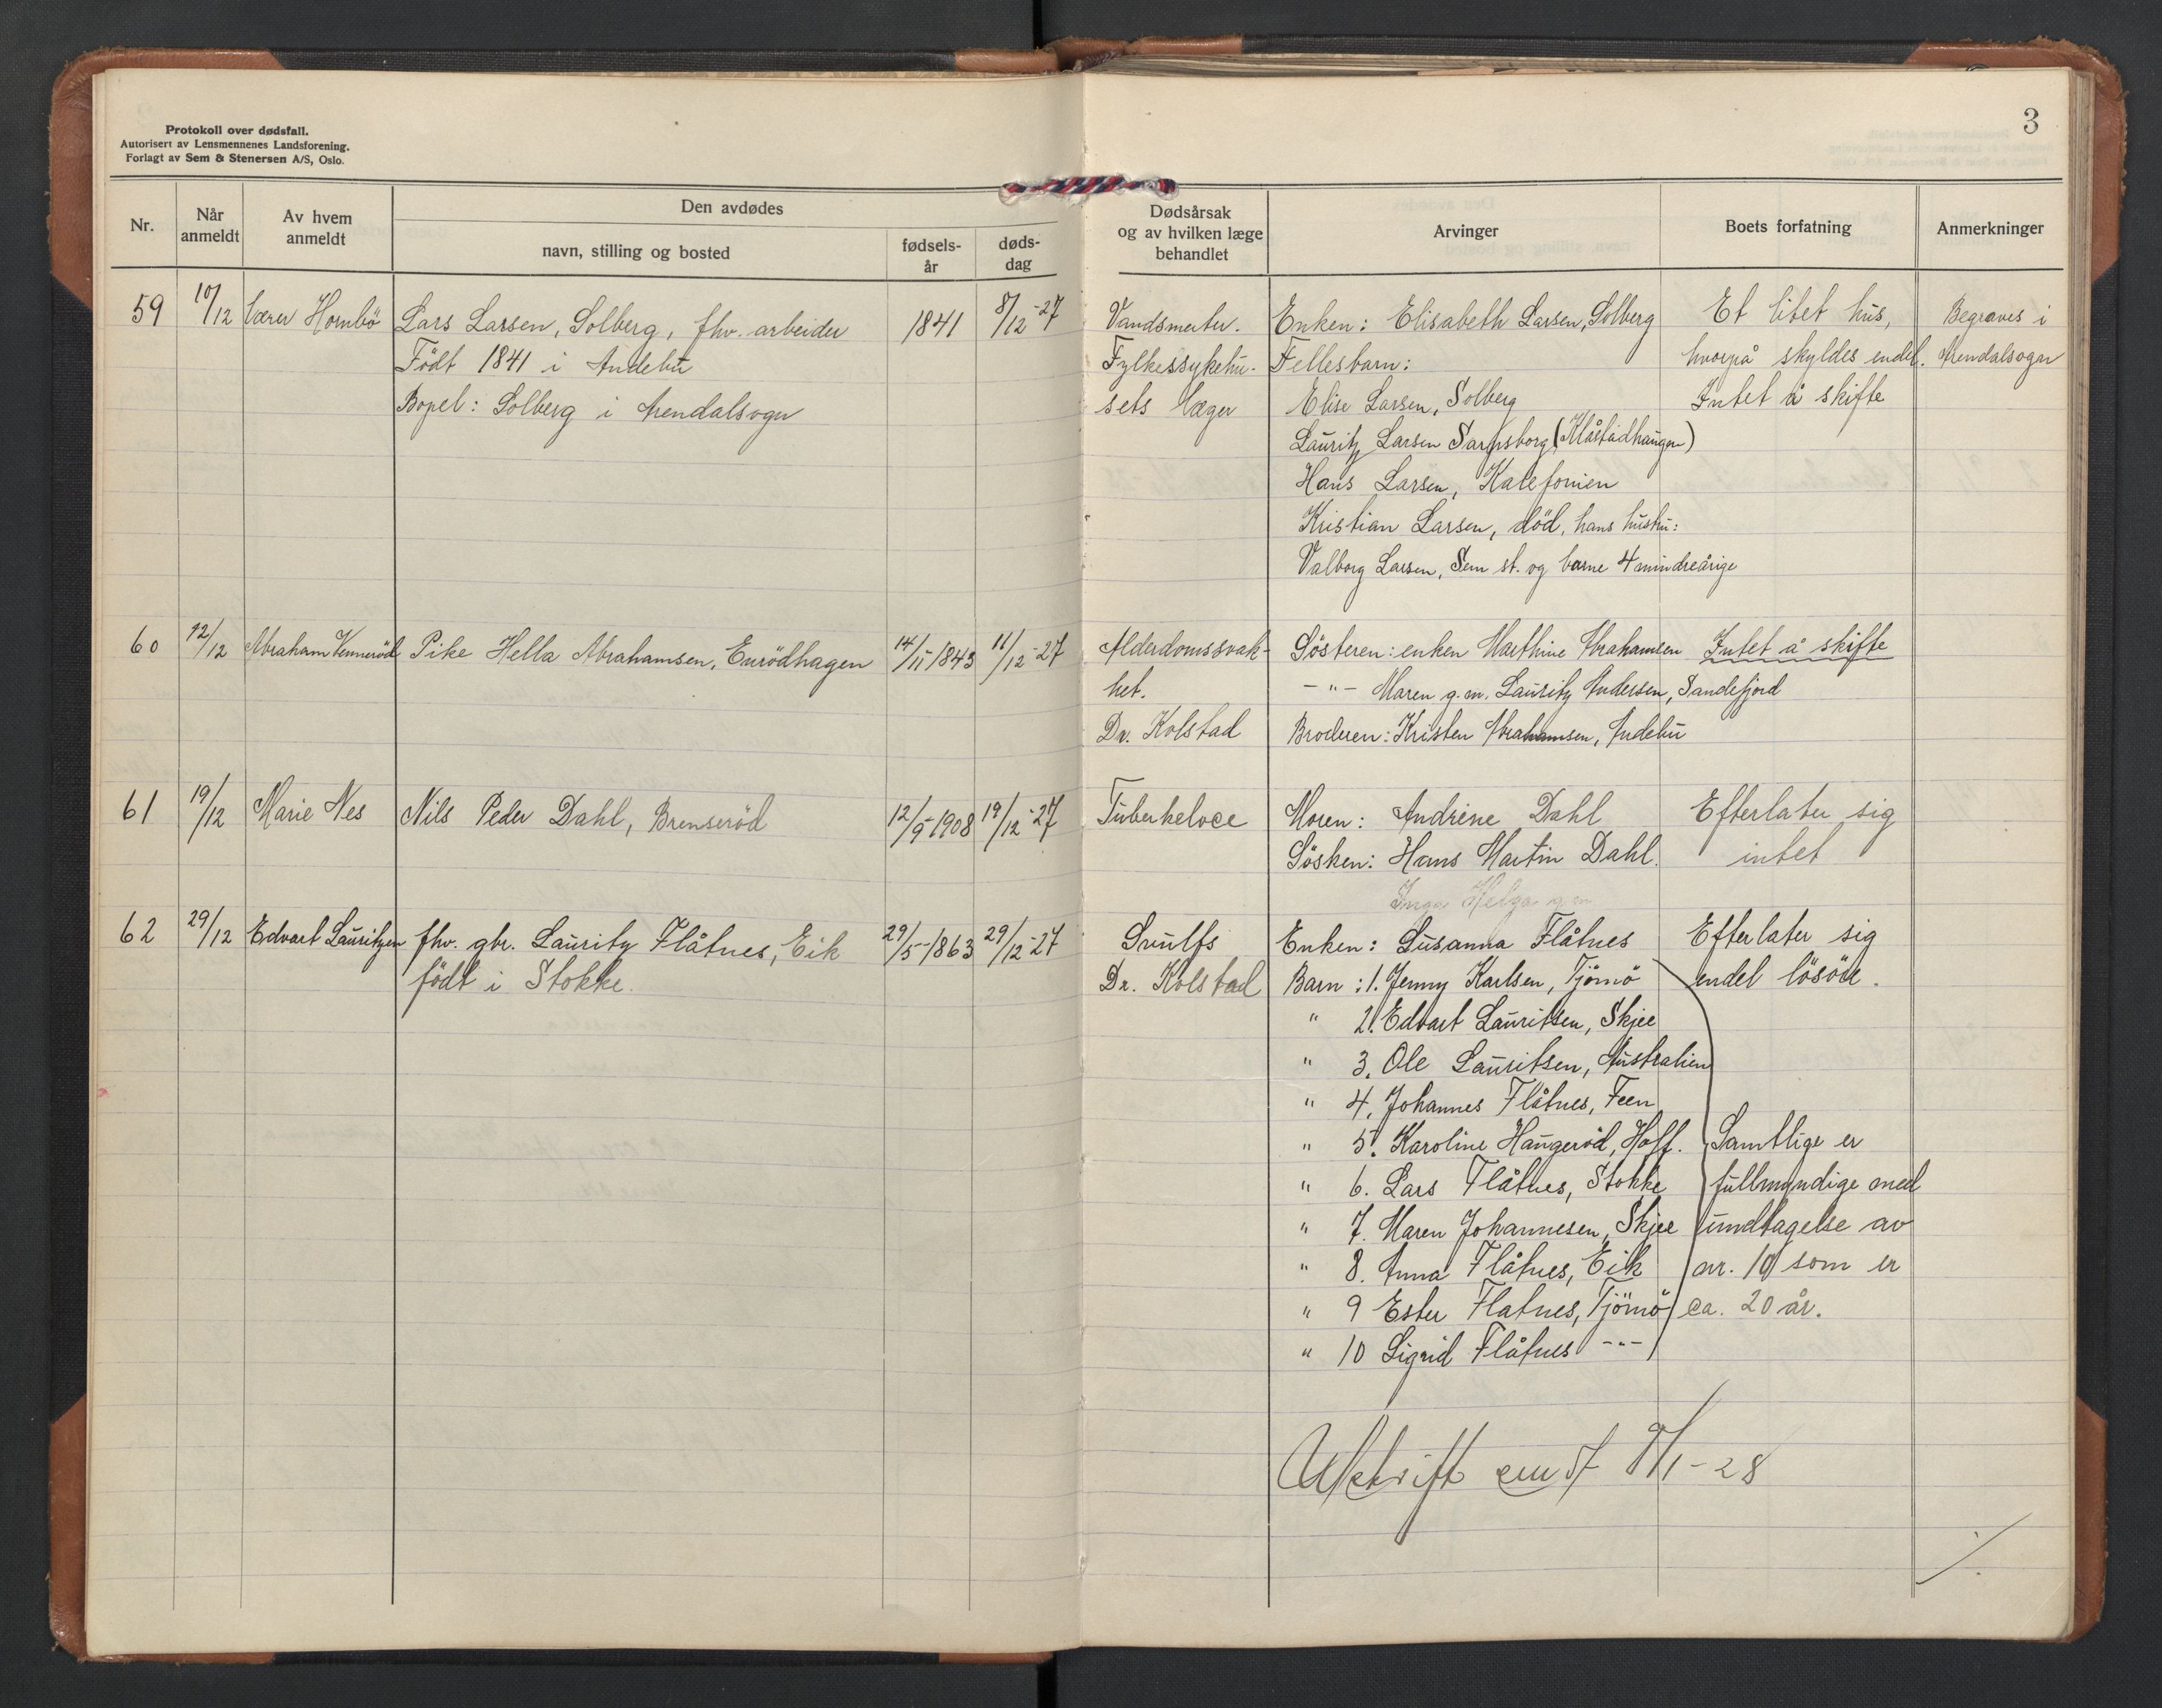 3
Protokoll over dødsfall.
Autorisert av Lensmennenes Landsforening.
Forlagt av Sem & Stenersen A/S, Oslo.
Nr.
Når anmeldt
Av hvem anmeldt
Den avdødes
navn, stilling og bosted
fødsels-år
døds-dag
Dødsårsak og av hvilken læge behandlet
Arvinger
Boets forfatning
Anmerkninger
59 10/12 Lærer Hornbö Lars Larsen, Solberg, fhv. arbeider 1841 8/12-27 Enken: Elisabeth Larsen, Solberg Et litet hus, Begraves i
Födt 1841 i Andebu Fylkessykehu- Fellesbarn: hvorpå skyldes endel. Arendalsogn
Bopel: Solberg i Arendalsogn sets læger Elise Larsen, Solberg Intet å skifte
Lauritz Larsen Sarpsborg (Klåstadhaugen)
Hans Larsen, Kalefonien
Kristian Larsen, död, hans hustru:
Valborg Larsen, Sem st. og barne 4 mindreårige
60 12/12 Abraham Venneröd Pike Hella Abrahamsen, Enrödhagen 14/11 1843 11/12-27 Alderdomssvak- Sösteren: enken Marthine Abrahamsen Intet å skifte
het. -"- Maren g.m. Lauritz Andersen, Sandefjord
Dr. Kolstad Broderen: Kristen Abrahamsen, Andebu
61 19/12 Marie Nes Nils Peder Dahl, Brenseröd 12/9-1908 19/12-27 Tuberkeloce Moren: Andrine Dahl Efterlater sig
Sösken: Hans Martin Dahl. intet
Inga Helga g.m.
62 29/12 Edvart Lauritzen fhv. gbr. Lauritz Flåtnes, Eik 29/5-1863 29/12-27 Enken: Susanna Flåtnes Efterlater sig
födt i Stokke. Dr. Kolstad Barn: 1. Jenny Karlsen, Tjömö endel lösöre.
" 2. Edvart Lauritsen, Skjee
" 3. Ole Lauritsen, Australien
" 4. Johannes Flåtnes, Feen
" 5. Karoline Haugeröd, Hoff. Samtlige er
" 6. Lars Flåtnes, Stokke fullmyndige med
" 7. Maren Johannesen, Skjee undtagelse av
" 8. Anna Flåtnes, Eik nr. 10 som er
" 9 Ester Flatnes, Tjömö ca. 20 år.
" 10 Sigrid Flåtnes -"-
Utskrift 9/1-28